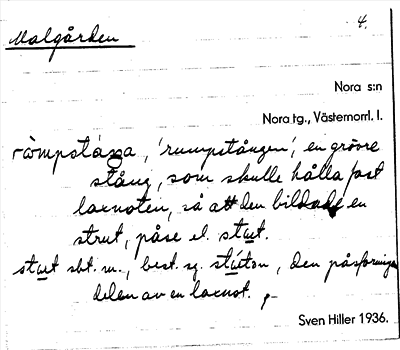 Malgården
4.
Nora s:n
Nora tg., Västernorrl. l.
ròmpstáṉa, 'rumpstången', en grövre
stång, som skulle hålla fast
laxnoten, så att den bildade en
strut, påse el. stu̲t.
stu̲t sbt. m., best. sg. stú̲ton, den påsformiga
delen av en laxnot.
Sven Hiller 1936.